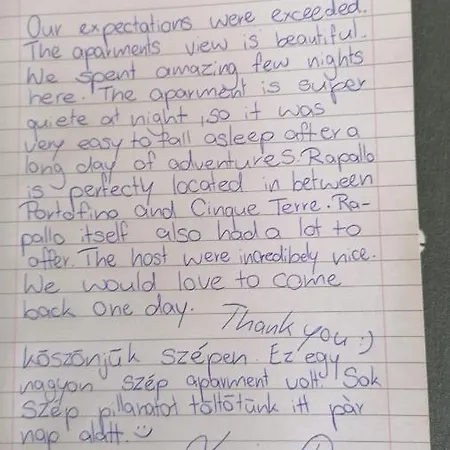 Our expectations were exceeded.
The aparments view is beautiful.
We spent amazing few nights
here. The aparment is super
quiete at night, so it was
very easy to fall asleep after a
long day of adventures. Rapallo
is perfectly located in between
Portofino and Cinque Terre. Ra-
pallo itself also had a lot to
offer. The host were incredibely nice.
We would love to come
back one day.
Thank you :)
köszönjük szépen. Ez egy
nagyon szép aparment volt! Sok
szép pillanatot töltöttünk itt pàr
nap alatt. :)